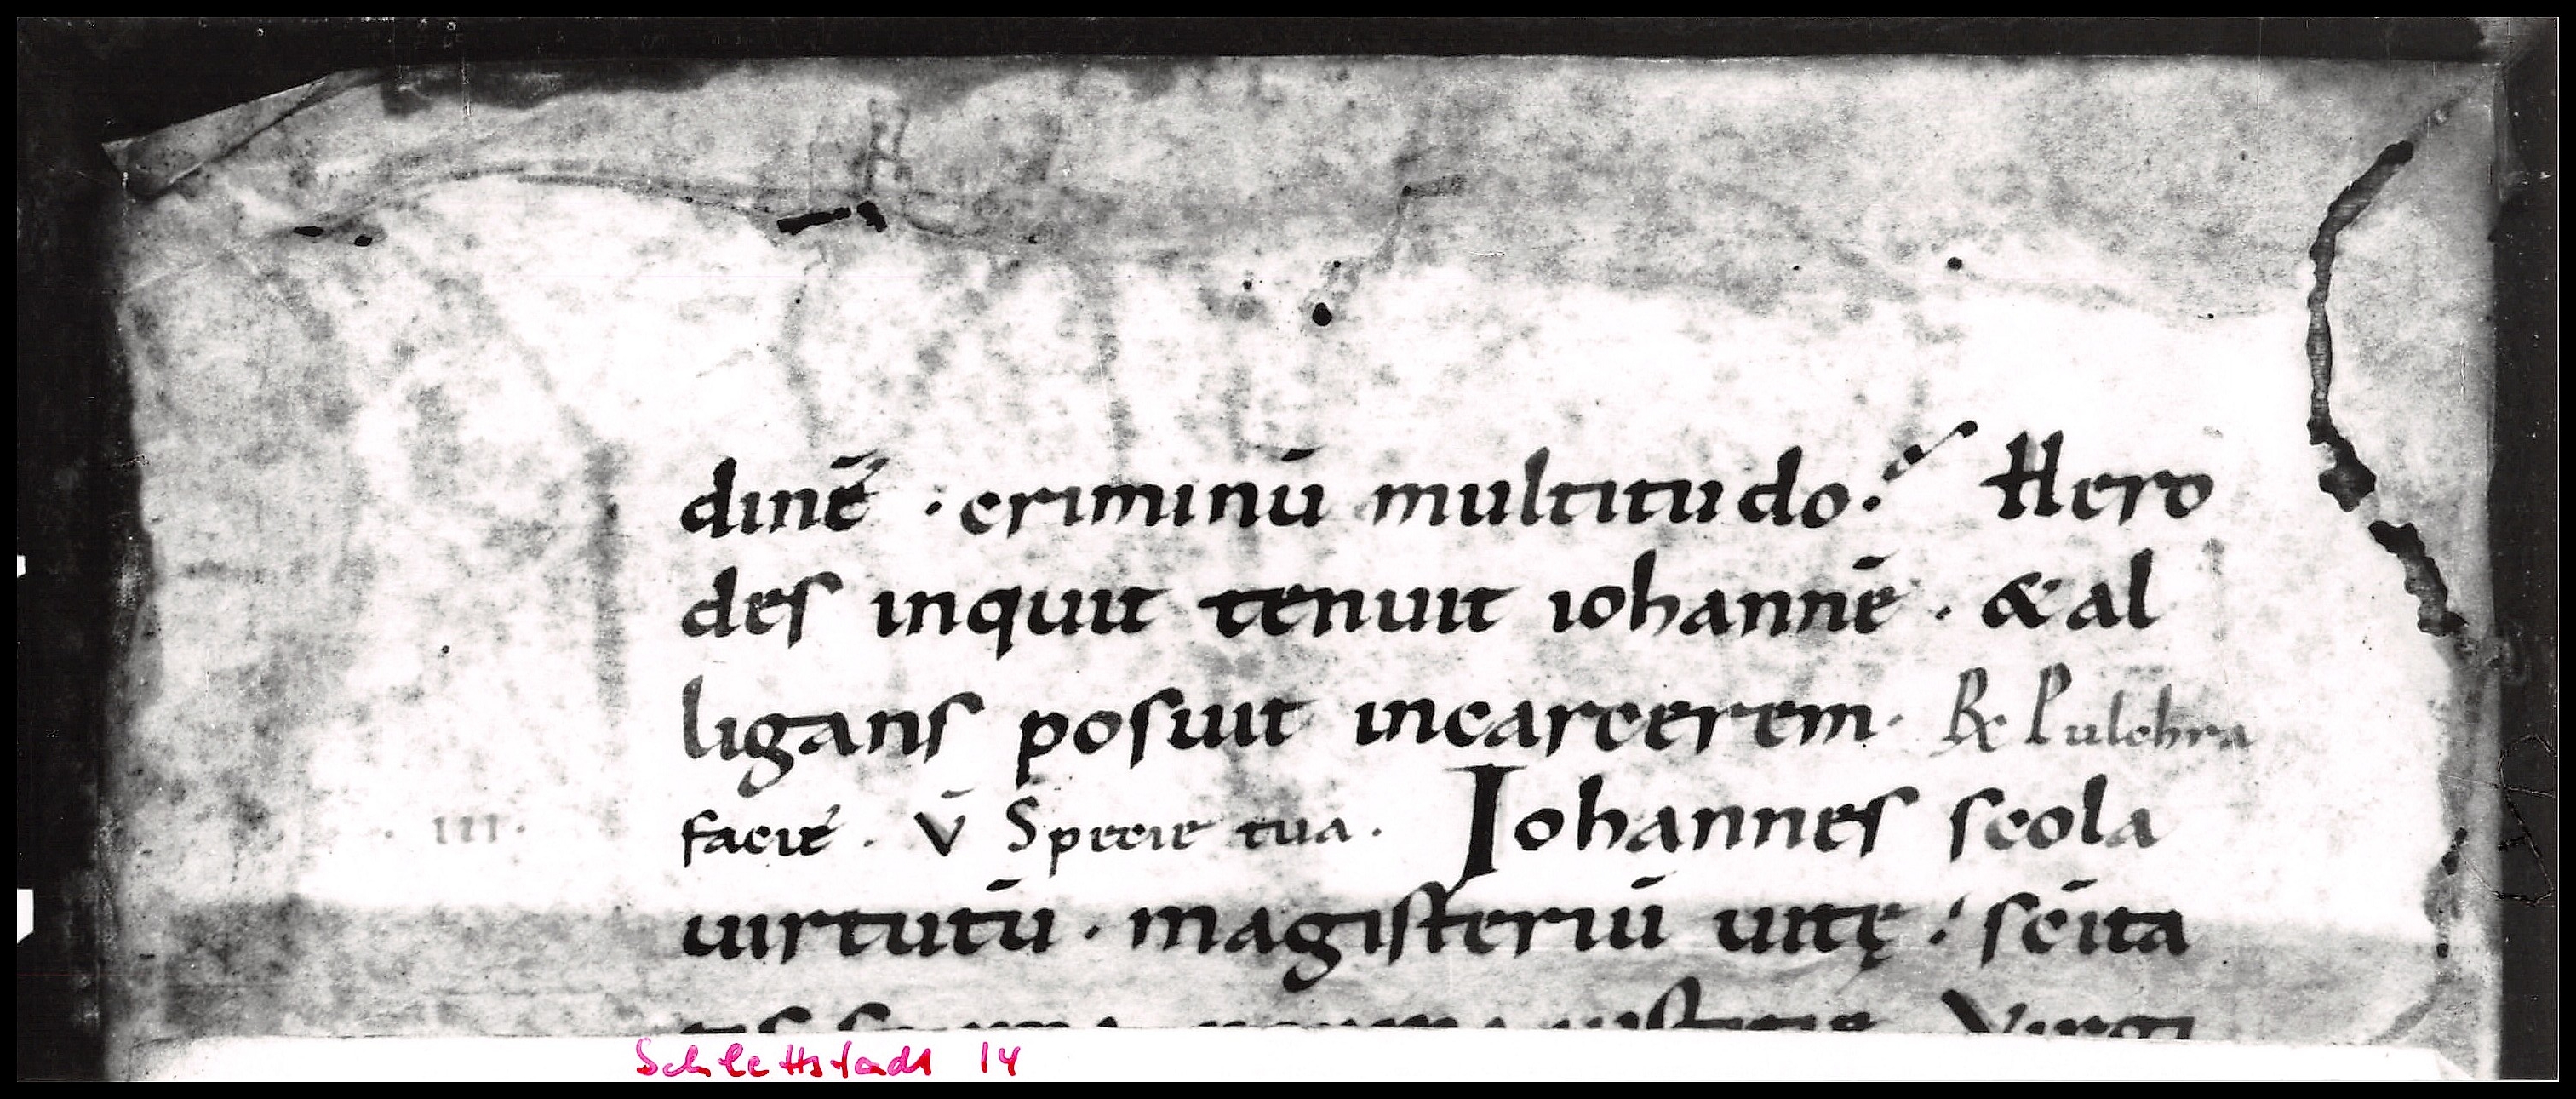 dinē · criminū multitudo. Hero
des inquit tenuit iohannē · & al
ligans posuit incarcerem. R Pulchra
· III · facie . V̄ Specie tua . Iohannes scola
uirtutū . magisteriū uitę : scīta
Schlettstadt 14